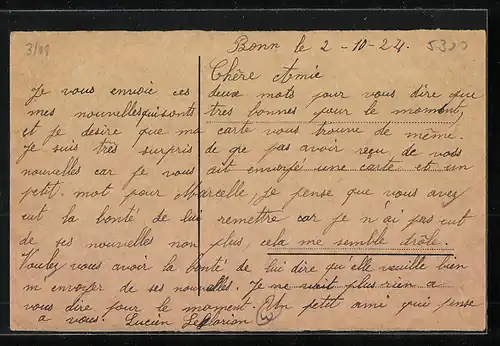 3/08
Bonn le 2-10-24.
5300
Chère Amie
Je vous envoie ces deux mots pour vous dire que
mes nouvelles qui sonts tres bonnes pour le moment,
et je désire que ma carte vous trouve de même.
Je suis très surpris de ne pas avoir reçu de vos
nouvelles car je vous ait envoyé une carte et un
petit mot pour Marcelle, Je pense que vous avez
eut la bonté de lui remettre car je n'ai pas eut
de ses nouvelles non plus, cela me semble drôle.
Voulez vous avoir la bonté de lui dire qu'elle veuille bien
m envoyer de ses nouvelles. Je ne voit plus rien a
vous dire pour le moment. Un petit ami qui pense
a vous. Lucien